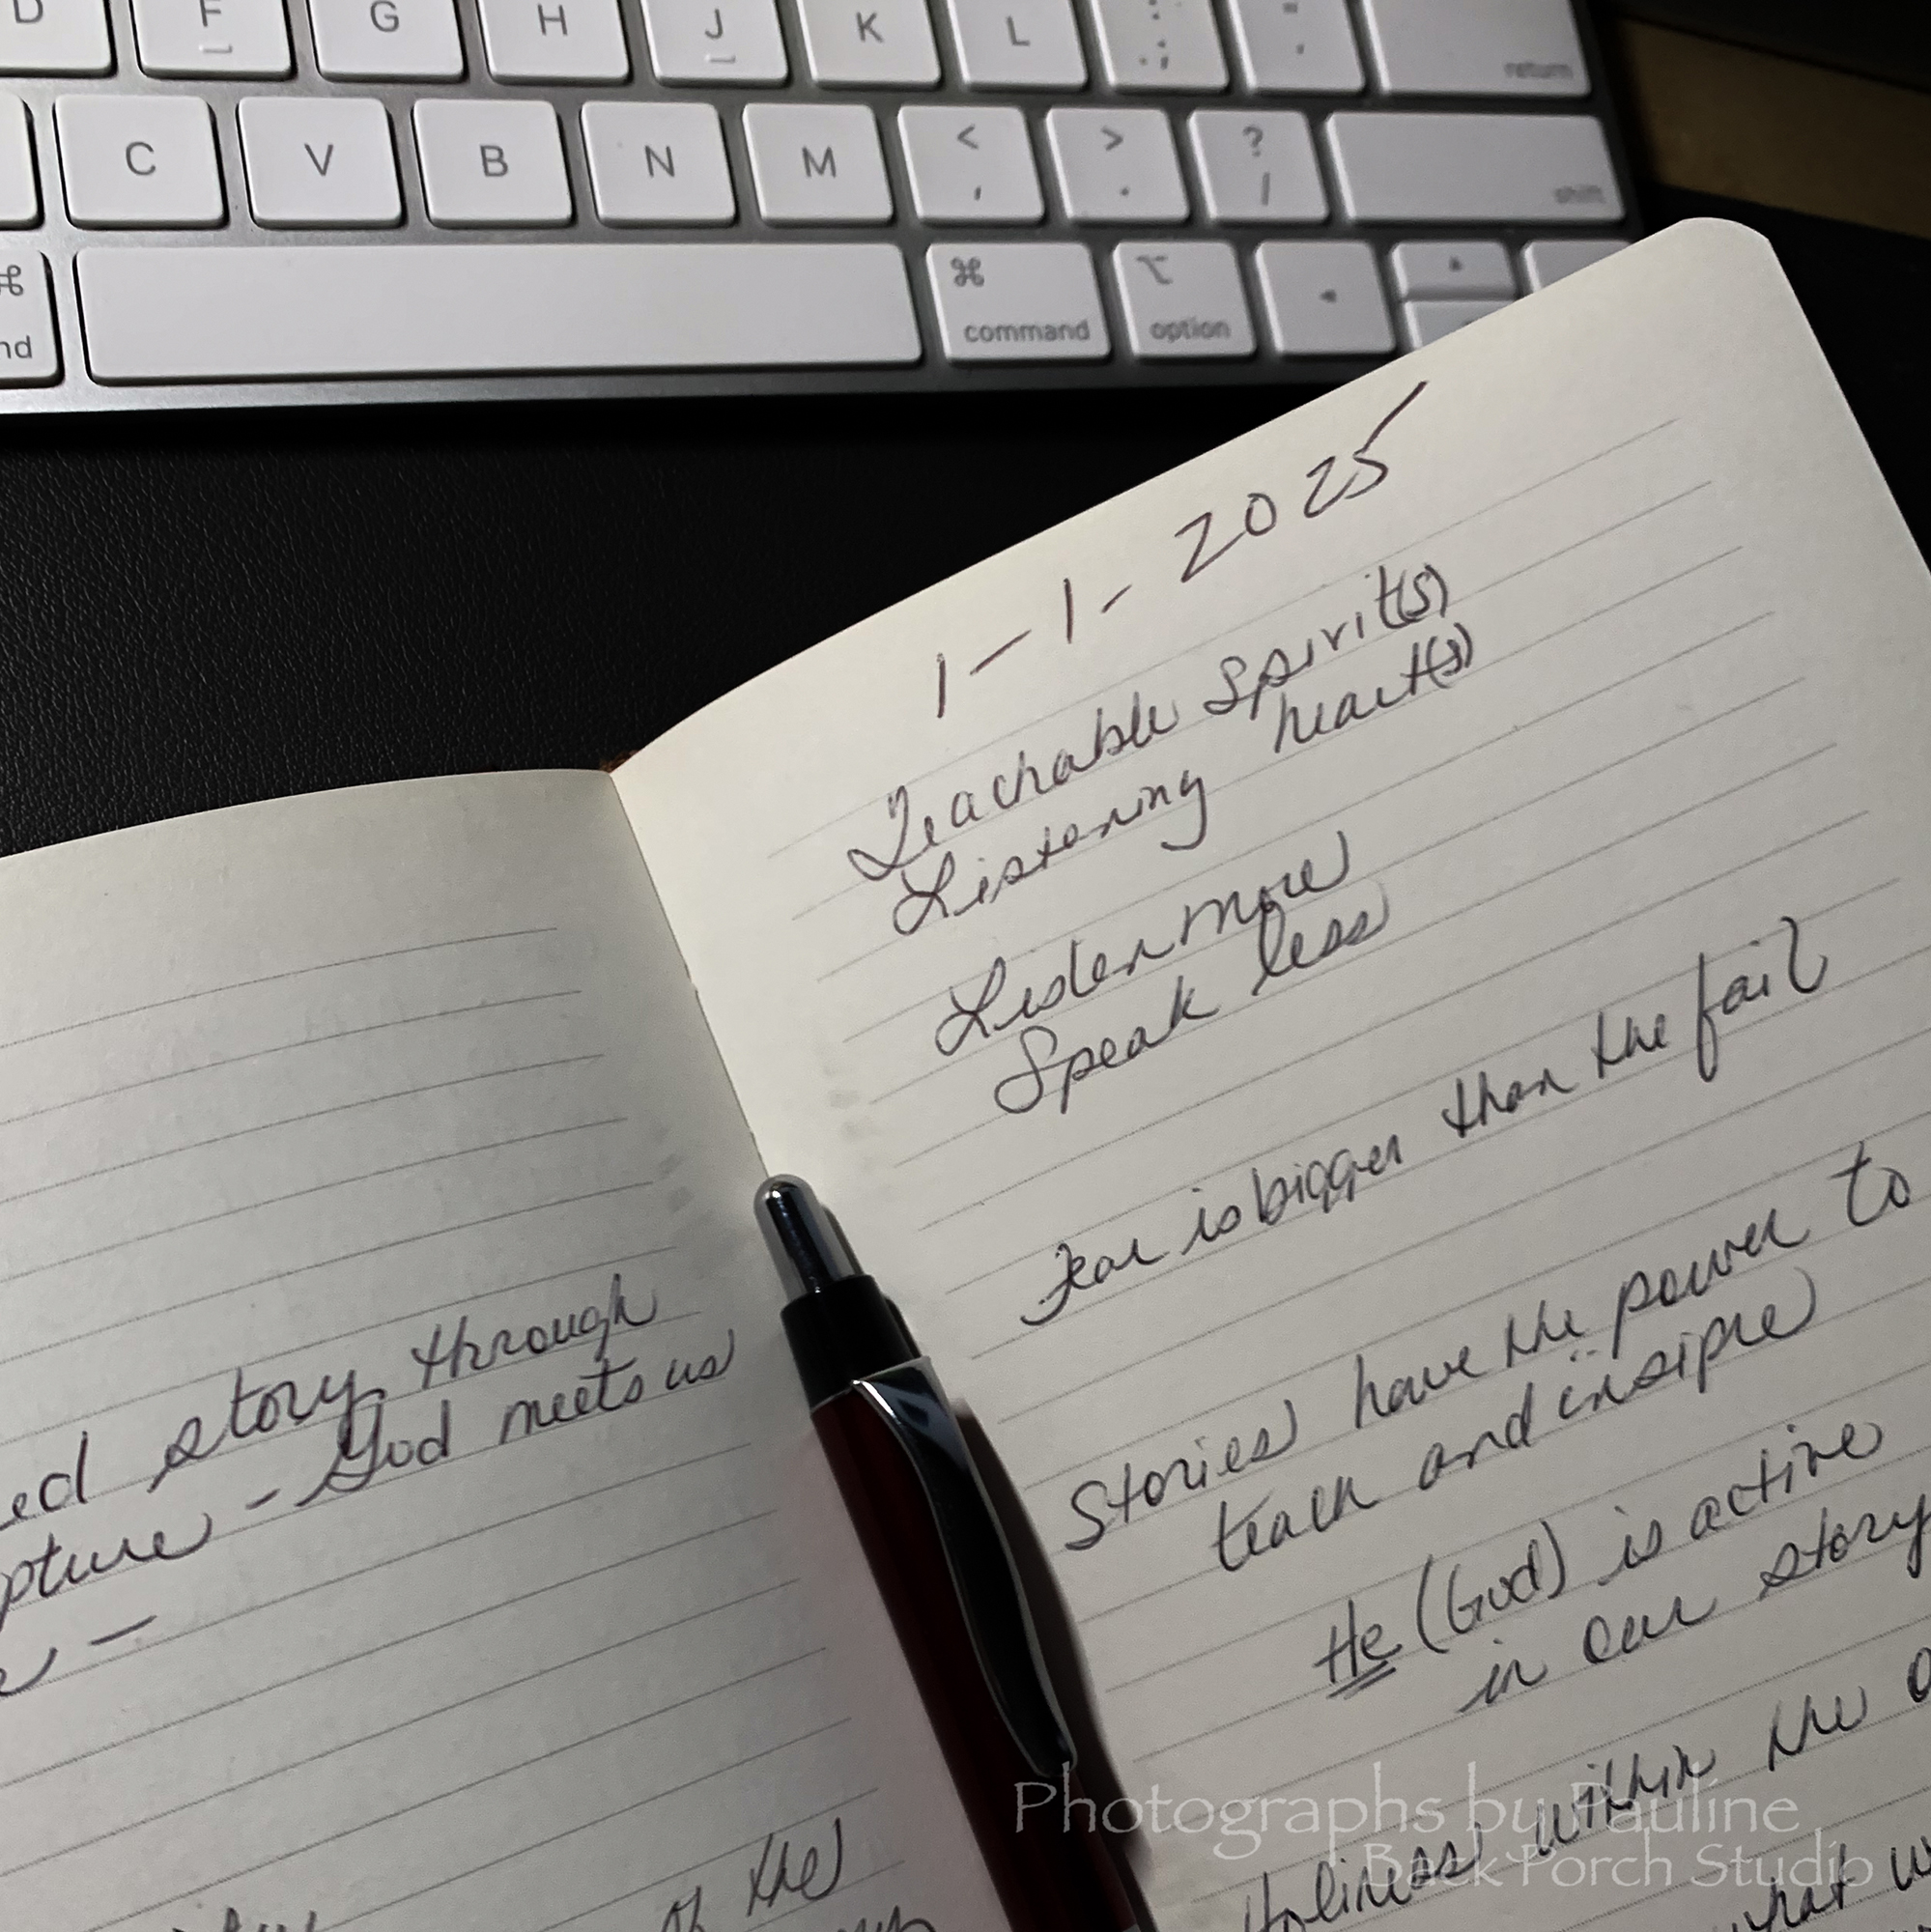 D F G H J K L : ; " ' return
C V B N M < , > . ? / shift
⌘ nd ⌘ command ⌥ option
ed story through
pture - God meets us
of the
1-1-2025
Teachable Spirit(s)
Listening heart(s)
Listen more
Speak less
Fear is bigger than the fail
Stories have the power to
teach and insipre
He (God) is active
in our story
Holiness within the
what
Photographs by Pauline
Back Porch Studio